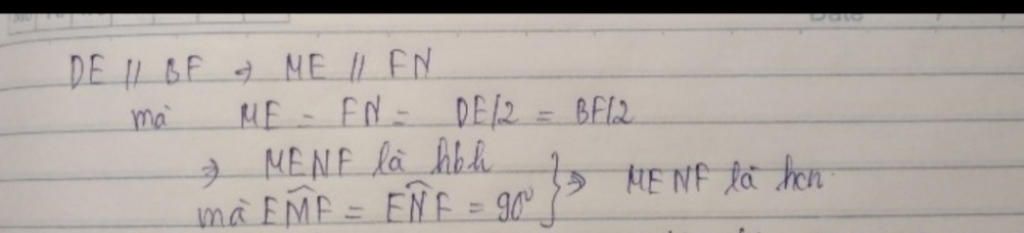 Date
DE // BF → ME // FN
mà ME = FN = DE/2 = BF/2
⇒ MENF là hbh
mà EMF̂ = EN̂F = 90° } ⇒ MENF là hcn